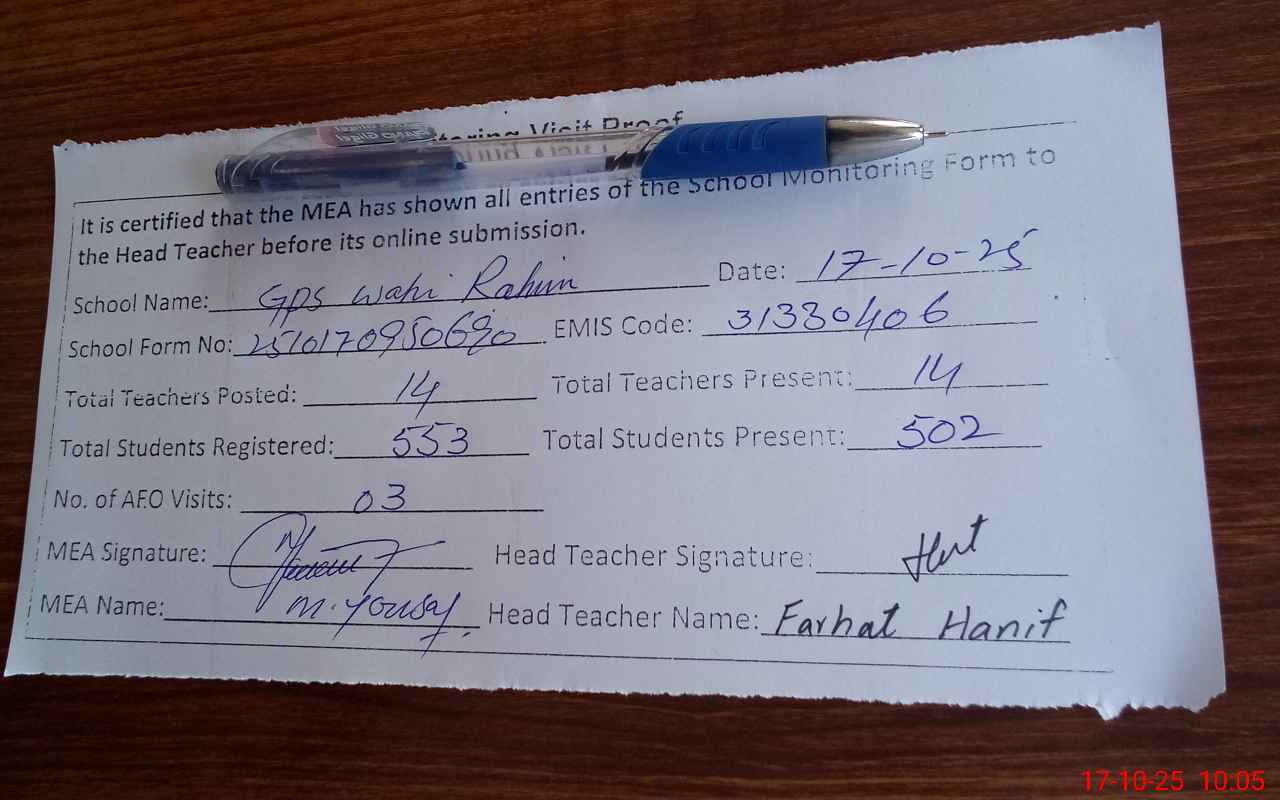 Visit Proof
It is certified that the MEA has shown all entries of the School Monitoring Form to
the Head Teacher before its online submission.
School Name: GPS Wahi Rahim Date: 17-10-25
School Form No: EMIS Code: 31330406
Total Teachers Posted: 14 Total Teachers Present: 14
Total Students Registered: 553 Total Students Present: 502
No. of AEO Visits: 03
MEA Signature: Head Teacher Signature:
MEA Name: M. Yousaf Head Teacher Name: Farhat Hanif
17-10-25 10:05